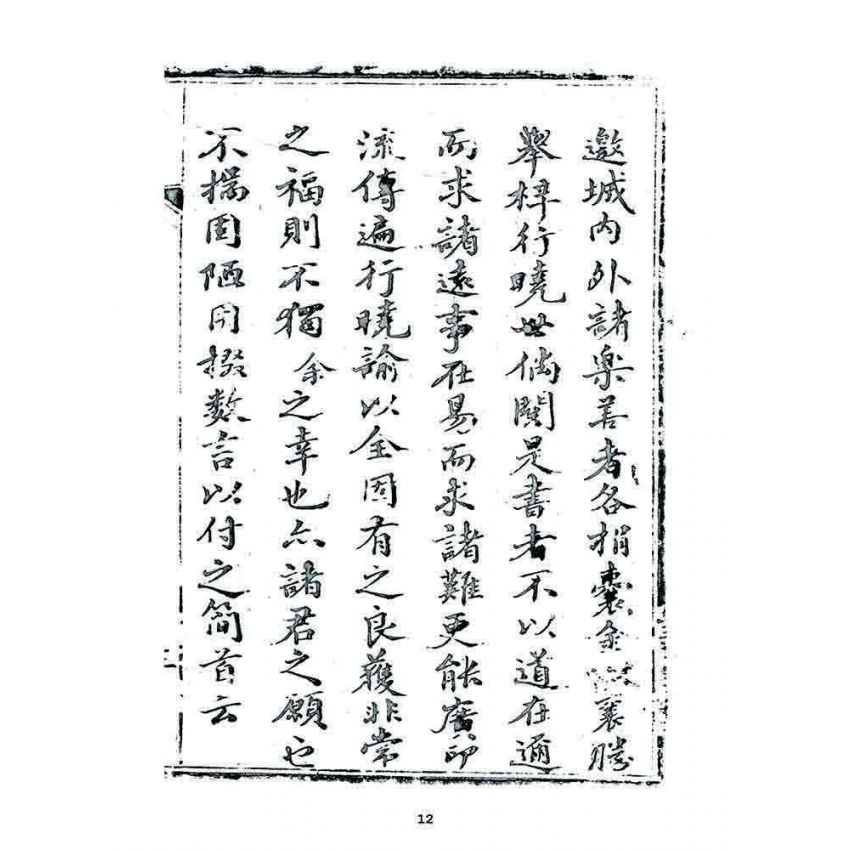 邀城内外諸樂善者各捐囊金以襄勝
舉梓行曉世倘閱是書者不以道在邇
而求諸遠事在易而求諸難更能廣印
流傳遍行曉諭以全固有之良獲非常
之福則不獨余之幸也亦諸君之願也
不揣固陋用掇数言以付之简首云
12